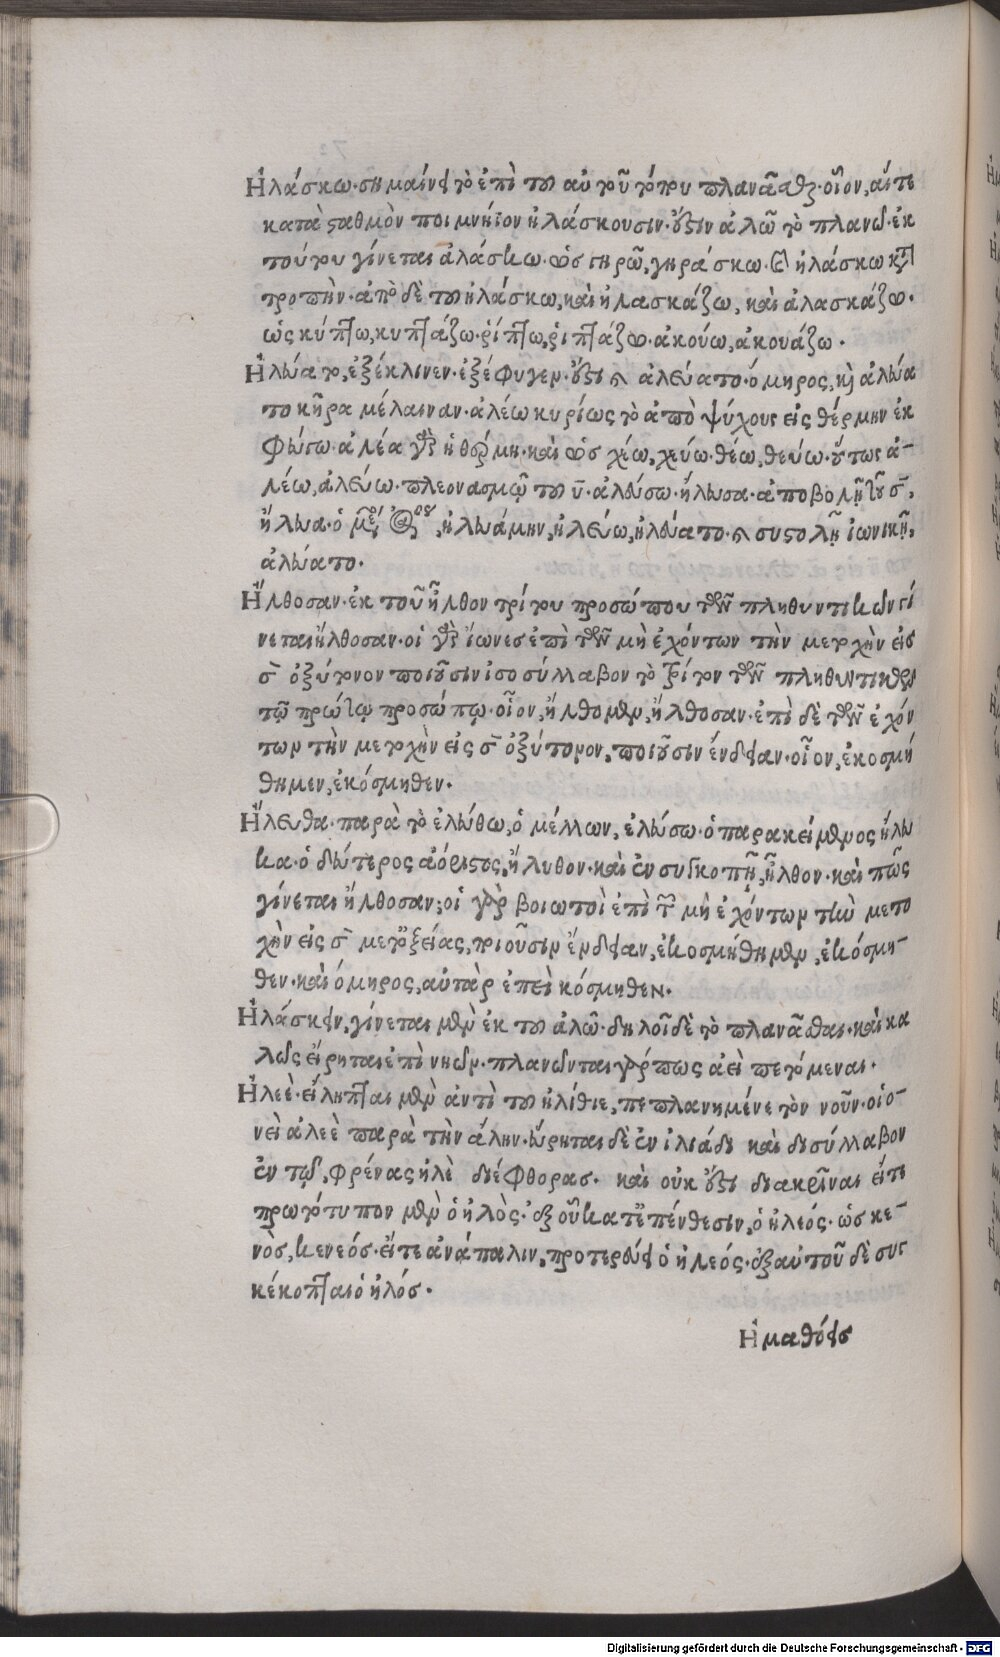 Ἠλάσκω· σημαίνει τὸ ἐπὶ τοῦ αὐτοῦ τόπου πλανᾶσθαι· οἷον, αἵτε
κατὰ σταθμὸν ποιμνήϊον ἠλάσκουσιν· ἔστιν ἀλῶ τὸ πλανῶ· ἐκ
τούτου γίνεται ἀλάσκω· ὡς γηρῶ, γηράσκω· καὶ ἠλάσκω κατὰ
τροπὴν· ἀπὸ δὲ τοῦ ἠλάσκω, καὶ ἠλασκάζω, καὶ ἀλασκάζω·
ὡς κύπτω, κυπτάζω· ῥίπτω, ῥιπτάζω· ἀκούω, ἀκουάζω·
Ἠλεύατο, ἐξέκλινεν· ἐξέφυγεν· ἔστι καὶ ἀλεύατο· ὅμηρος, καὶ ἀλεύα
το κῆρα μέλαιναν· ἀλέω κυρίως τὸ ἀπὸ ψύχους εἰς θέρμην ἐκ
φεύγω· ἀλέα γὰρ ἡ θέρμη· καὶ ὡς χέω, χεύω· θέω, θεύω· οὕτως ἀ-
λέω, ἀλεύω· πλεονασμῷ τοῦ υ· ἀλεύσω· ἤλευσα· ἀποβολῇ τοῦ σ,
ἤλευα· ὁ μέσος ἀόριστος, ἠλευάμην, ἠλεύω, ἠλεύατο· καὶ συστολῇ ἰωνικῇ,
ἀλεύατο·
Ἤλθοσαν· ἐκ τοῦ ἦλθον τρίτου προσώπου τῶν πληθυντικῶν γί
νεται ἤλθοσαν· οἱ γὰρ ἴωνες ἐπὶ τῶν μὴ ἐχόντων τὴν μετοχὴν εἰς
σ ὀξύτονον ποιοῦσιν ἰσοσύλλαβον τὸ τρίτον τῶν πληθυντικῶν
τῷ πρώτῳ προσώπῳ· οἷον, ἤλθομεν, ἤλθοσαν· ἐπὶ δὲ τῶν ἐχόν
των τὴν μετοχὴν εἰς σ ὀξύτονον, ποιοῦσιν ἔνδειαν· οἷον, ἐκοσμή
θημεν, ἐκόσμηθεν·
Ἤλευθα· παρὰ τὸ ἐλεύθω, ὁ μέλλων, ἐλεύσω· ὁ παρακείμενος ἤλευ
κα· ὁ δεύτερος ἀόριστος, ἤλυθον· καὶ ἐν συγκοπῇ, ἦλθον· καὶ πῶς
γίνεται ἤλθοσαν; οἱ γὰρ βοιωτοὶ ἐπὶ τῶν μὴ ἐχόντων τὴν μετο
χὴν εἰς σ μετ' ὀξείας, ποιοῦσιν ἔνδειαν, ἐκοσμήθημεν, ἐκόσμη-
θεν· καὶ ὅμηρος, αὐτὰρ ἐπεὶ κόσμηθεν·
Ἠλάσκειν, γίνεται μὲν ἐκ τοῦ ἀλῶ· δηλοῖ δὲ τὸ πλανᾶσθαι· καὶ κα
λῶς εἴρηται ἐπὶ νηῶν· πλανῶνται γάρ πως ἀεὶ πετόμεναι·
Ἠλεὲ· εἴληπται μὲν ἀντὶ τοῦ ἠλίθιε, πεπλανημένε τὸν νοῦν· οἱο-
νεὶ ἀλεὲ παρὰ τὴν ἄλην· εὕρηται δὲ ἐν ἰλιάδι καὶ δισύλλαβον
ἐν τῷ, φρένας ἠλὲ διέφθορας· καὶ οὐκ ἔστι διακρῖναι εἴτε
πρωτότυπον μὲν ὁ ἠλὸς· ἐξ οὗ κατ' ἐπένθεσιν, ὁ ἠλεός· ὡς κε-
νὸς, κενεός· εἴτε ἀνάπαλιν, προτερεύει ὁ ἠλεός· ἐξ αὐτοῦ δὲ συγ
κέκοπται ὁ ἠλός·
Ἠμαθόεις
Digitalisierung gefördert durch die Deutsche Forschungsgemeinschaft - DFG